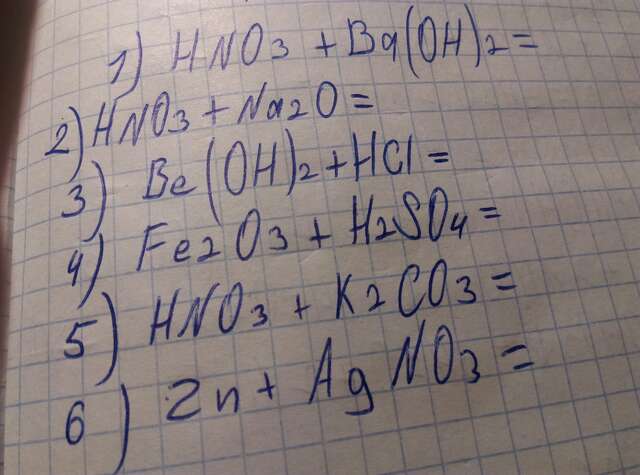 1) HNO3 + Ba(OH)2 =
2) HNO3 + Na2O =
3) Be(OH)2 + HCl =
4) Fe2O3 + H2SO4 =
5) HNO3 + K2CO3 =
6) Zn + AgNO3 =